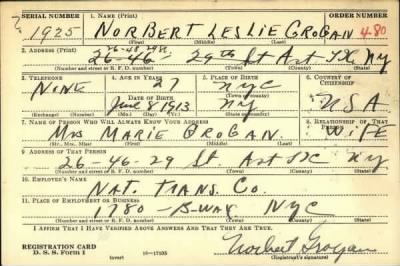 SERIAL NUMBER 1. NAME (Print) ORDER NUMBER
1925 NORBERT LESLIE GROGAN 480
(First) (Middle) (Last)
2. ADDRESS (Print) 26-48 29 St.
26-46- 29th St Ast IX NY
(Number and street or R. F. D. number) (Town) (County) (State)
3. TELEPHONE 4. AGE IN YEARS 5. PLACE OF BIRTH 6. COUNTRY OF CITIZENSHIP
NONE 27 NYC
DATE OF BIRTH (Town or county)
June 8 1913 NY USA
(Exchange) (Number) (Mo.) (Day) (Yr.) (State or country)
7. NAME OF PERSON WHO WILL ALWAYS KNOW YOUR ADDRESS 8. RELATIONSHIP OF THAT PERSON
Mrs MARIE GROGAN WIFE
(Mr., Mrs., Miss) (First) (Middle) (Last)
9. ADDRESS OF THAT PERSON
26-46-29 St Ast IX NY
(Number and street or R. F. D. number) (Town) (County) (State)
10. EMPLOYER'S NAME
NAT. TRANS. Co.
11. PLACE OF EMPLOYMENT OR BUSINESS
1780 - B-WAY NYC
(Number and street or R. F. D. number) (Town) (County) (State)
I AFFIRM THAT I HAVE VERIFIED ABOVE ANSWERS AND THAT THEY ARE TRUE.
REGISTRATION CARD
D. S. S. Form 1 (over) 16-17105 Norbert Grogan
(Registrant's signature)